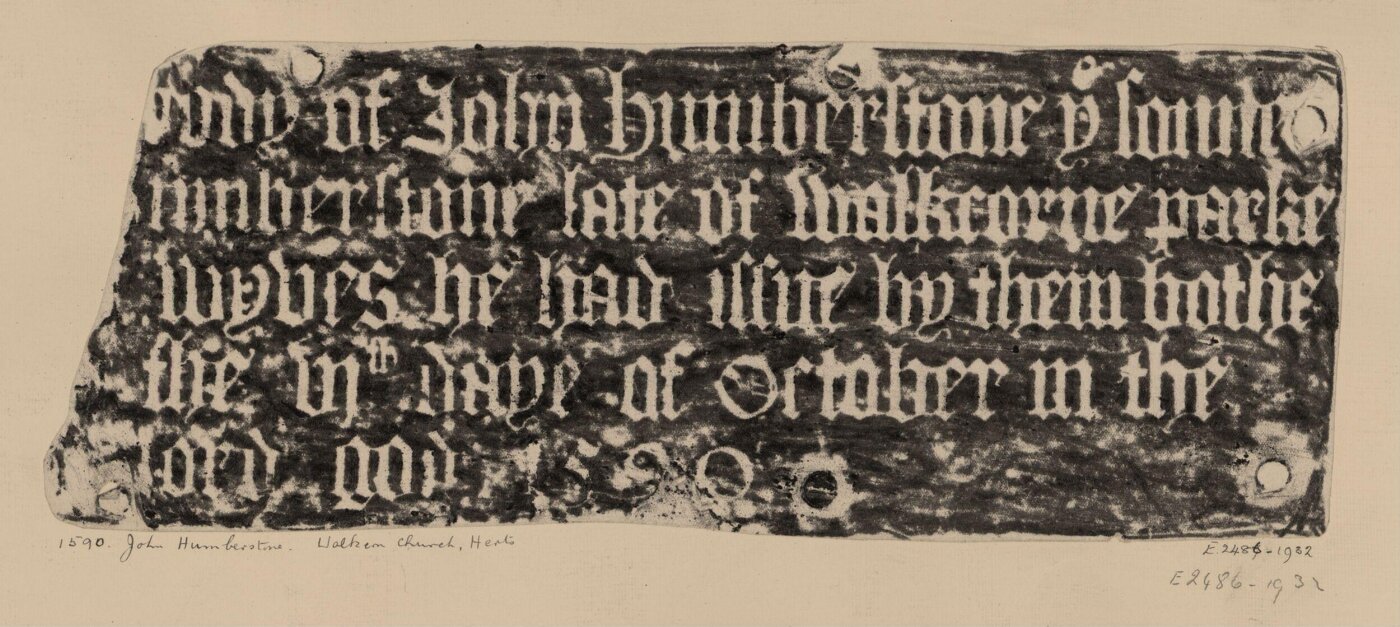 body of John humberstone yͤ sonne
umberstone late of Walkcorne parke
wyves he had issue by them bothe
the vijth daye of October in the
lord god 1590
1590. John Humberstone. Walkern Church, Herts
E.2486-1932
E2486-1932